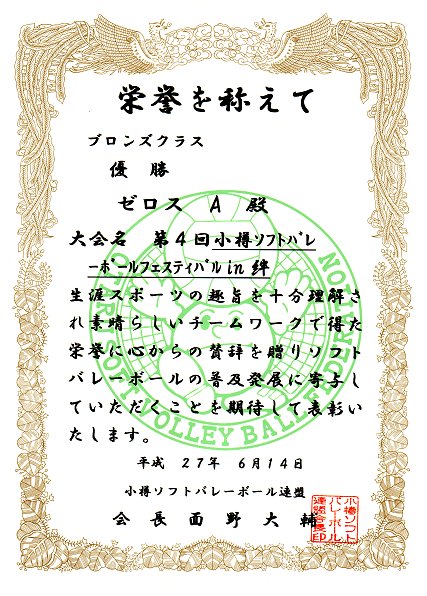 栄誉を称えて
ブロンズクラス
優勝
ゼロス A 殿
大会名 第4回小樽ソフトバレ
ーボールフェスティバル in 絆
生涯スポーツの趣旨を十分理解さ
れ素晴らしいチームワークで得た
栄誉に心からの賛辞を贈りソフト
バレーボールの普及発展に寄与し
ていただくことを期待して表彰い
たします。
平成 27年 6月14日
小樽ソフトバレーボール連盟
会長 面野大輔
小樽ソフト
バレーボール
連盟会長印
OTARU SOFT VOLLEY BALL FEDERATION